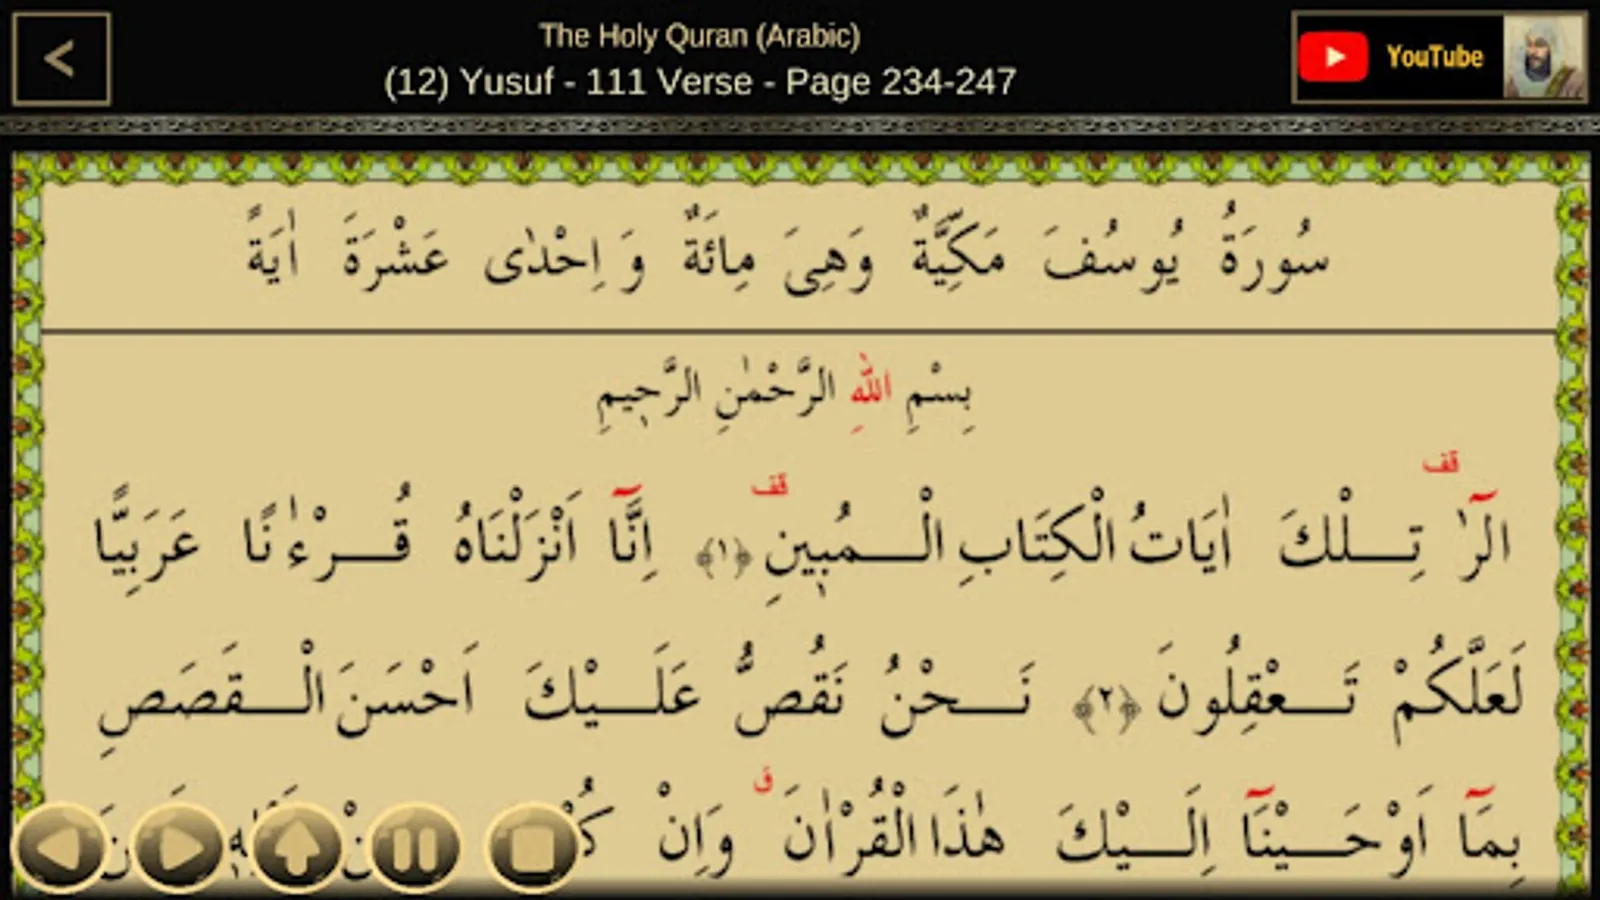 The Holy Quran (Arabic)
(12) Yusuf - 111 Verse - Page 234-247
YouTube
سُورَةُ يُوسُفَ مَكِّيَّةٌ وَهِىَ مِائَةٌ وَ اِحْدٰى عَشْرَةَ اٰيَةً
بِسْمِ اللهِ الرَّحْمٰنِ الرَّحٖيمِ
الٓرٰ قف تِلْكَ اٰيَاتُ الْكِتَابِ الْمُبٖينِ قف ﴿١﴾ اِنَّٓا اَنْزَلْنَاهُ قُرْءٰنًا عَرَبِيًّا
لَعَلَّكُمْ تَعْقِلُونَ ﴿٢﴾ نَحْنُ نَقُصُّ عَلَيْكَ اَحْسَنَ الْقَصَصِ
بِمَٓا اَوْحَيْنَٓا اِلَيْكَ هٰذَا الْقُرْاٰنَ ق وَاِنْ